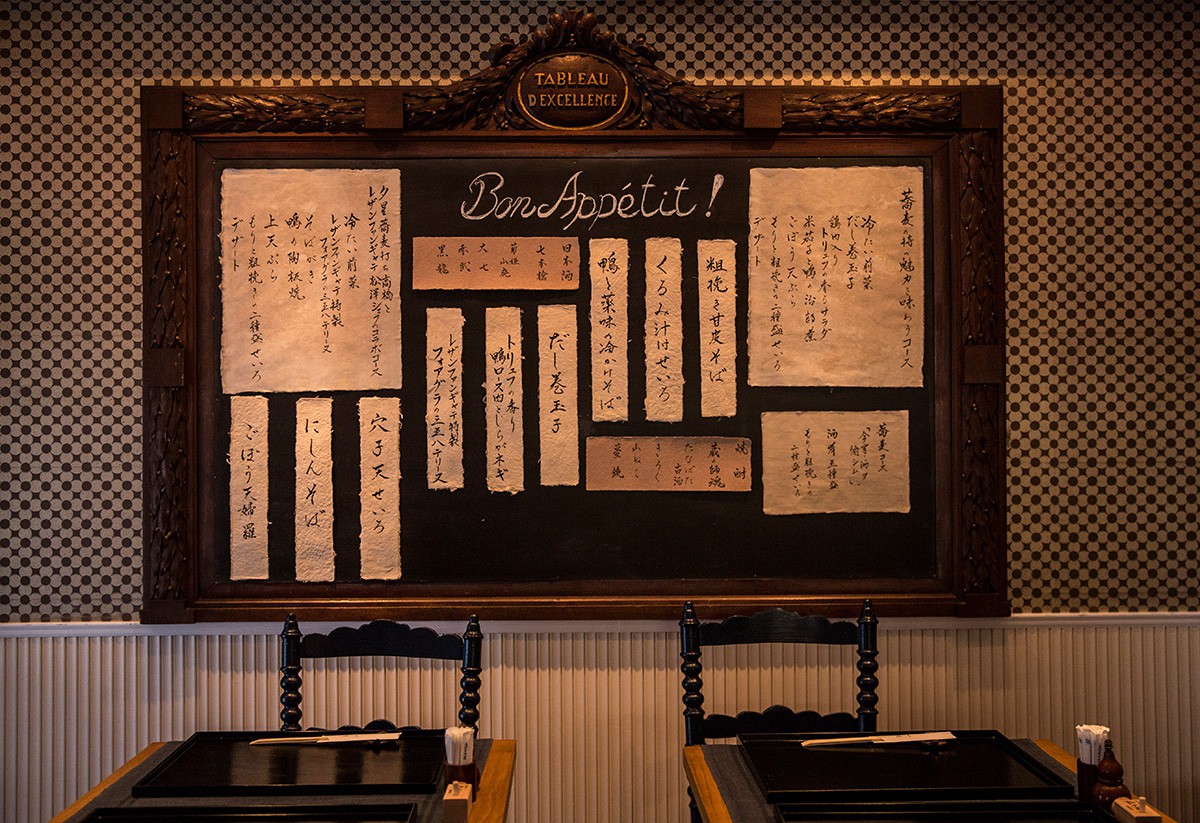 TABLEAU
D'EXCELLENCE
Bon Appétit!
蕎麦の特の魅力を味わうコース
冷たい前菜
だし巻玉子
鴨肉入り
トリュフの香るサラダ
米茄子と鴨の治部煮
ごぼう天ぷら
もりと粗挽きの二種盛せいろ
デザート
粗挽き甘皮そば
くるみ汁付せいろ
鴨と薬味の冷かけそば
日本酒
七本槍
大七
黒龍
だし巻玉子
トリュフの香り
鴨ロース肉としらがネギ
レザンファンギャテ特製
フォアグラの三五八テリーヌ
夕星蕎麦打ち高橋と
レザンファンギャテ松澤シェフのコラボコース
冷たい前菜
レザンファンギャテ特製
フォアグラの三五八テリーヌ
そばがき
鴨の陶板焼
上天ぷら
もりと粗挽き二種盛せいろ
デザート
穴子天せいろ
にしんそば
ごぼう天婦羅
焼酎
蔵の師魂
たなばた
古酒
きろく
山ねこ
蕎麦コース
酒肴五種盛
もりと粗挽きの
二種盛せいろ